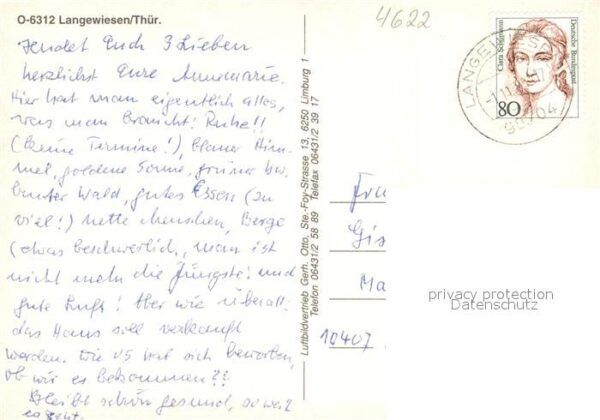 O-6312 Langewiesen/Thür.
4622
sendet Euch 3 Lieben
herzlichst Eure Annemarie.
Hier hat man eigentlich alles,
was man braucht! Ruhe!!
(keine Termine!), blauer Him-
mel, goldene Sonne, grüner bzw.
bunter Wald, gutes Essen (zu
viel!) nette Menschen, Berge
(etwas beschwerlich, man ist
nicht mehr die Jüngste! und
gute Luft! Aber wie überall:
das Haus soll verkauft
werden. Die VS hat sich beworben,
ob wir es bekommen??
Bleibt schön gesund, so weit
es geht.
Luftbildvertrieb Gerh. Otto, Ste.-Foy-Strasse 13, 6250 Limburg 1
Telefon 06431/2 58 89 Telefax 06431/2 39 17
Clara Schumann
Deutsche Bundespost
80
LANGEWIESEN
98704
Frau
Gis
Ma
10407
privacy protection
Datenschutz